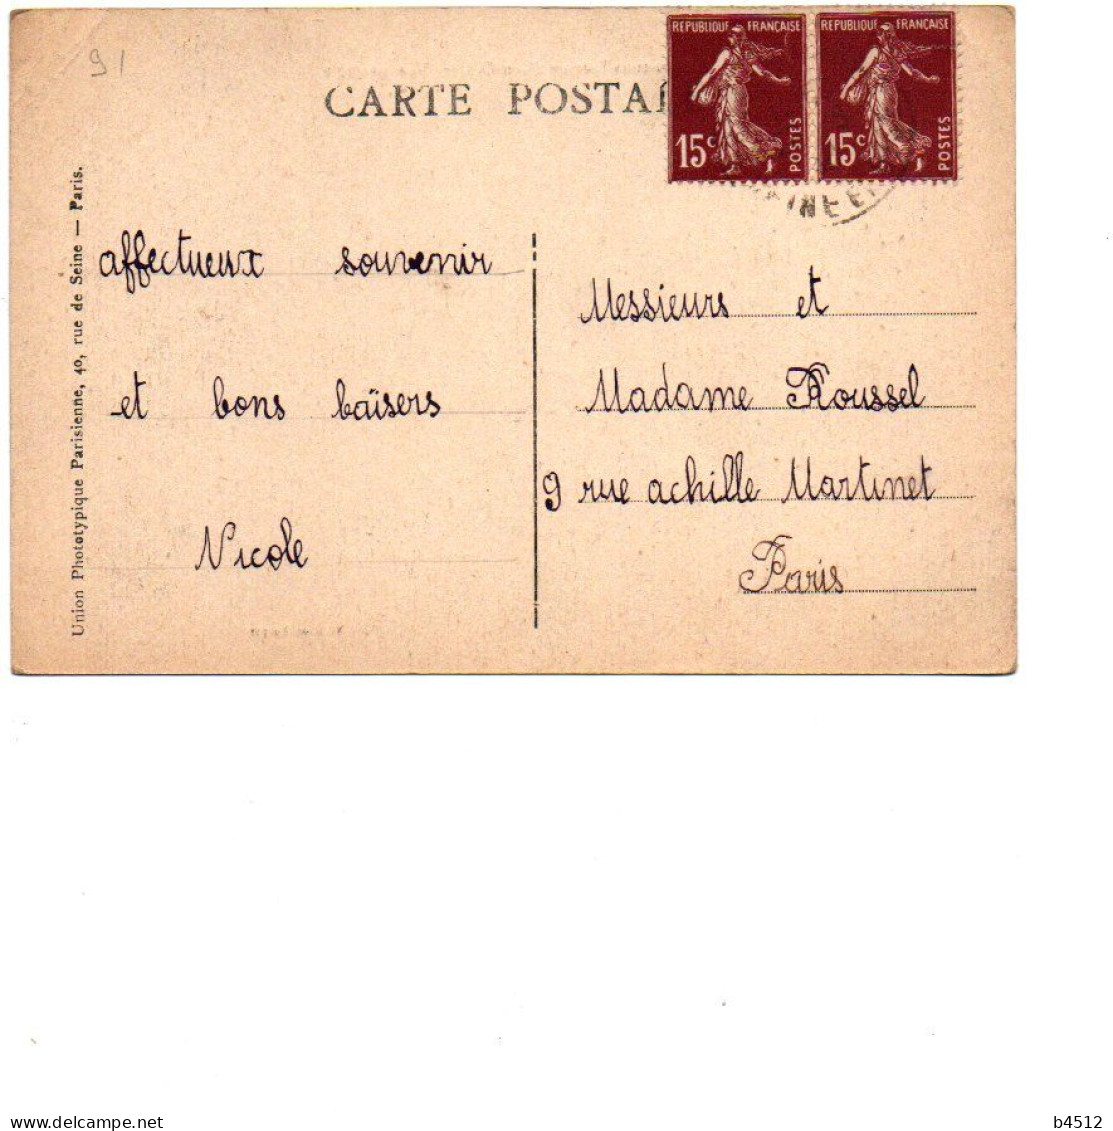 91
CARTE POSTA
REPUBLIQUE FRANÇAISE
15c
POSTES
REPUBLIQUE FRANÇAISE
15c
POSTES
Union Phototypique Parisienne, 40, rue de Seine — Paris.
affectueux souvenir
et bons baïsers
Nicole
Messieurs et
Madame Roussel
9 rue achille Martinet
Paris
delcampe.net
b4512